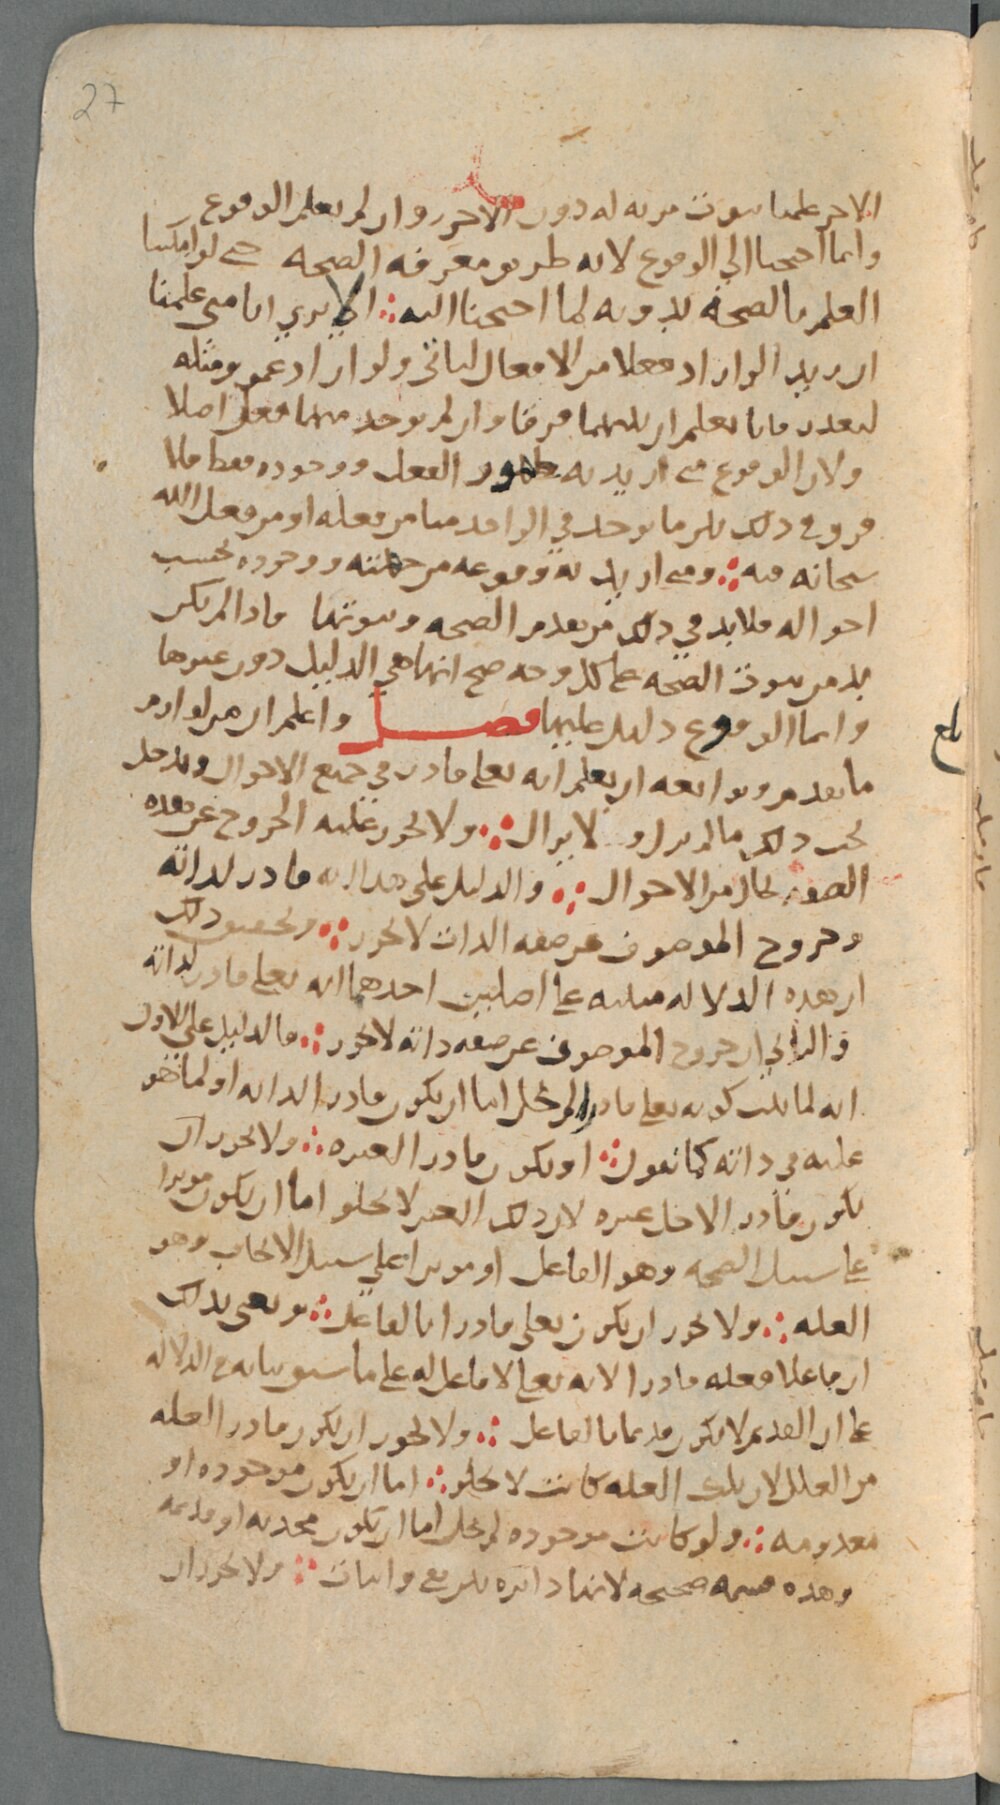 27
الاخر علمنا ثبوت مزيه له دون الاخر وان لم نعلم الوقوع
وانما احتجنا الى الوقوع لانه طريق معرفه الصحه حتى لو امكننا
العلم بالصحة بدونه لما احتجنا اليه ∴ الا ترى انا متى علمنا
ان زيد الو اراد فعلا من الافعال لتاتى ولو اراد عمرو مثله
لتعذر فانا نعلم ان بينهما فرقا وان لم يوجد منهما فعل اصلا
ولان الوقوع متى اريد به ظهور الفعل ووجوده فقط فلا
فرق في ذلك بين ما يوجد في الواحد منا من فعله او من فعل الله
سبحانه فيه ∴ ومتى اريد به وقوعه من جهته ووجوده بحسب
احواله فلا بد في ذلك من تقدم الصحه وثبوتها فاذا لم يكن
بد من ثبوت الصحه على كل وجه صح انها هي الدليل دون غيرها
وانما الوقوع دليل عليها فصل واعلم ان من لوازم
ما تقدم وتوابعه ان يعلم انه تعلى قادر في جميع الاحوال ويدخل
تحت ذلك ما لم يزل و لا يزال ∴ ولا يجوز عليه الخروج عن هذه
الصفه بحال من الاحوال ∴ والدليل على هذا انه قادر لذاته
وخروج الموصوف عن صفه الذات لا يجوز ∴ وتحقيق ذلك
ان هذه الدلاله مبنيه على اصلين احدهما انه تعلى قادر لذاته
والثاني ان خروج الموصوف عن صفه ذاته لا يجوز ∴ فالدليل على الاول
انه لما ثبت كونه تعلى قادرا لم يخل اما ان يكون قادرا لذاته او لما هو
عليه في ذاته كما نقول ∴ او يكون قادرا لغيره ∴ ولا يجوز ان
يكون قادرا لاجل غيره لان ذلك الغير لا يخلو اما ان يكون موثرا
على سبيل الصحه وهو الفاعل او موثرا على سبيل الايجاب وهو
العله ∴ ولا يجوز ان يكون تعلى قادرا بالفاعل ∴ ونعنى بذلك
ان فاعلا فعله قادرا لانه تعلى لا فاعل له على ما سبق بيانه من الدلاله
على ان القديم لا يكون قديما بالفاعل ∴ ولا يجوز ان يكون قادرا لعله
من العلل لان تلك العله كانت لا تخلو ∴ اما ان يكون موجوده او
معدومه ∴ ولو كانت موجوده لم تخل اما ان يكون محدثه او قديمه
وهذه قسمه صحيحه لانها دايره بين نفي واثبات ∴ ولا يجوز ان
بلغ